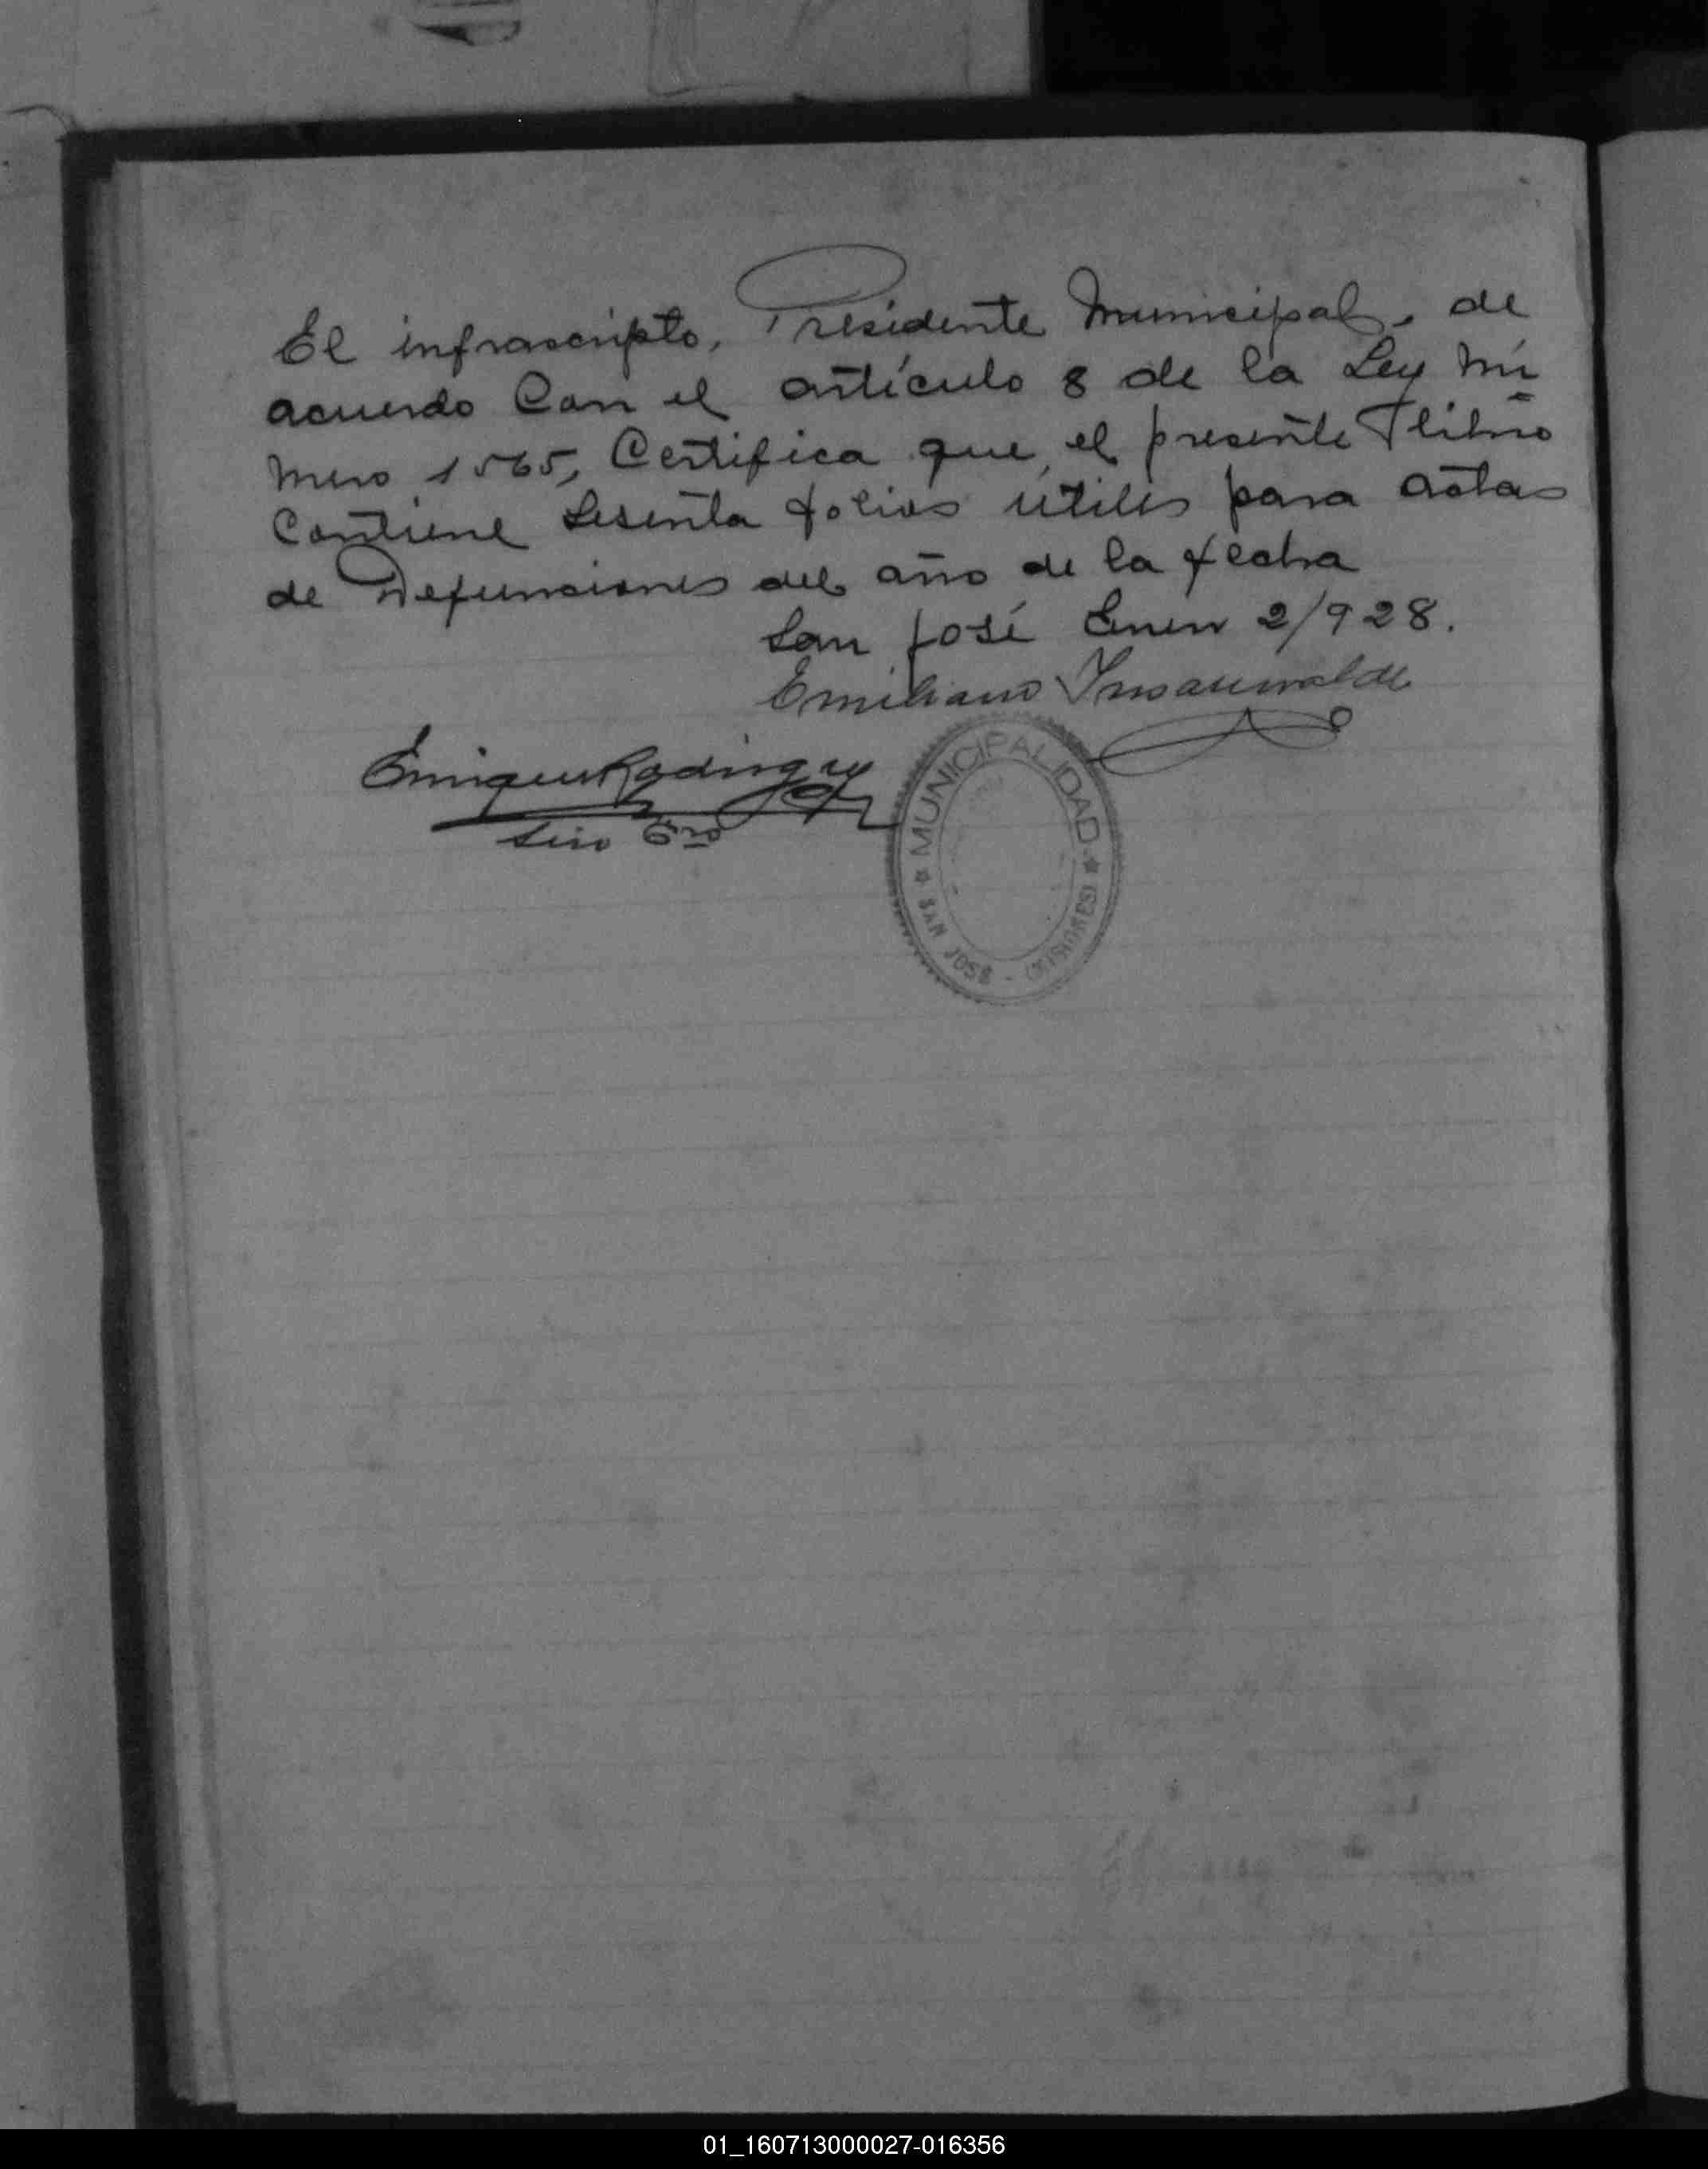 El infrascripto, Presidente Municipal, de
acuerdo Con el artículo 8 de la Ley Nú
mero 1565, Certifica que el presente libro
Contiene Sesenta folios útiles para actas
de Defunciones del año de la fecha
San José Enero 2/928.
Emiliano
Enrique Rodriguez
MUNICIPALIDAD
SAN JOSE - (MISIONES)
01_160713000027-016356